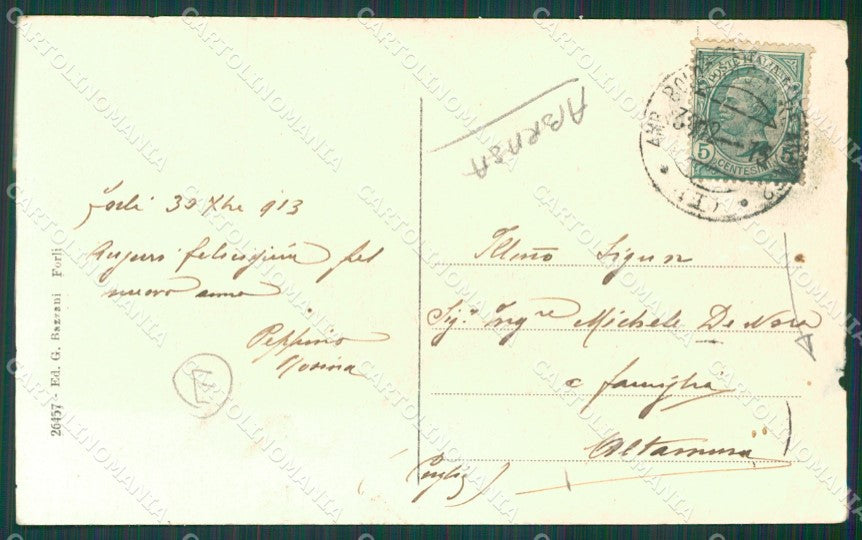 Forlì 30 Xbre 913
Auguri felicissimi pel
nuovo anno
Peppino
Rosina
26457 - Ed. G. Bazzani Forlì
ABRASA
POSTE ITALIANE
5 CENTESIMI
AMB. BOLOGNA
13
Illmo Signor
Sig. Ingre Michele De Nora
e famiglia
Altamura
(Puglie)
CARTOLINOMANIA